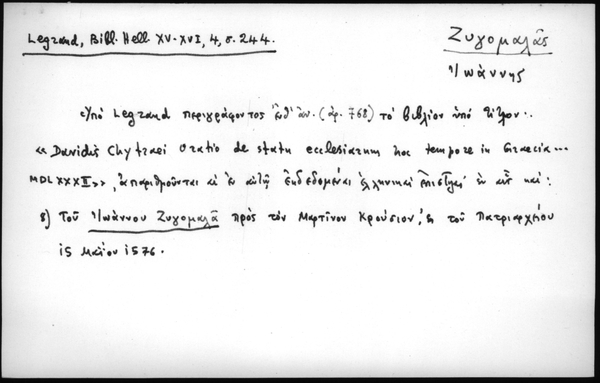 Legrand, Bibl. Hell. XV-XVI, 4, σ. 244.
Ζυγομαλᾶς
Ἰωάννης
Ὑπὸ Legrand περιγράφοντος ἔνθ' ἀν. (ἀρ. 768) τὸ βιβλίον ὑπὸ τίτλον:
«Davidis Chytraei Oratio de statu ecclesiarum hoc tempore in Graecia...
MDLXXXII», ἀπαριθμοῦνται αἱ ἐν αὐτῷ ἐκδεδομέναι ἑλληνικαὶ ἐπιστολαί, ἐν αἷς καὶ:
8) Τοῦ Ἰωάννου Ζυγομαλᾶ πρὸς τὸν Μαρτῖνον Κρούσιον, ἐκ τοῦ Πατριαρχείου
15 Μαΐου 1576.